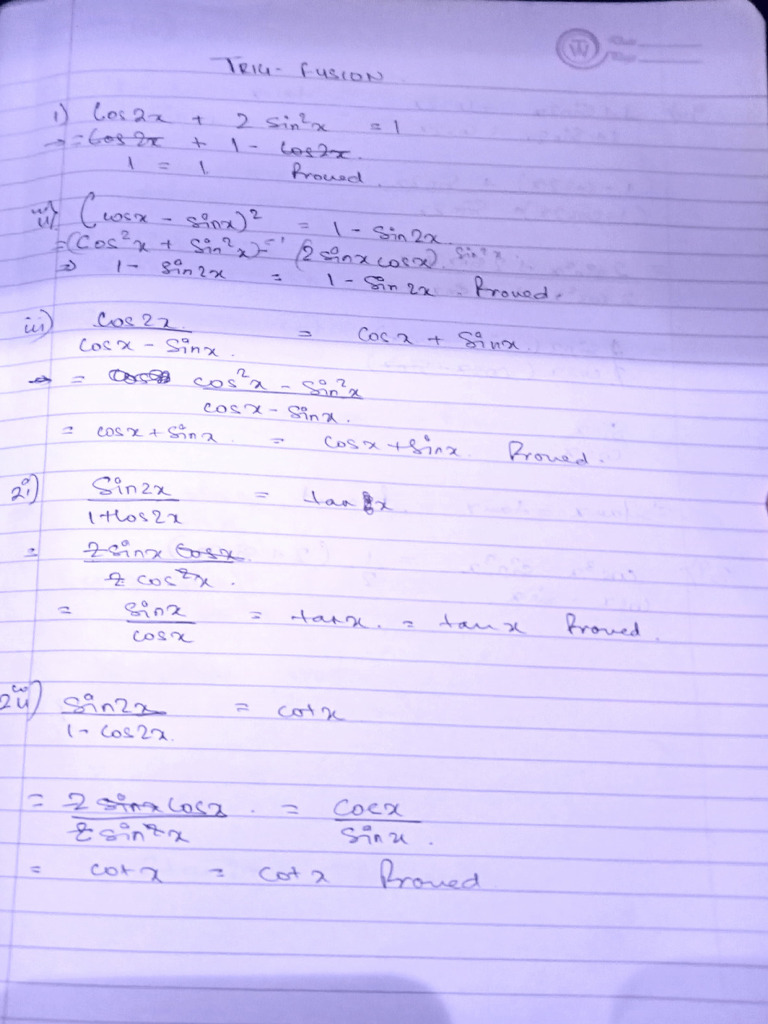 TRIG - FUSION
i) Cos2x + 2 sin²x = 1
→ = Cos2x + 1 - Cos2x.
1 = 1. Proved.
ii) (cosx - sinx)² = 1 - Sin2x
= (Cos²x + Sin²x) - (2sinxcosx)
⇒ 1 - sin2x = 1 - Sin2x. Proved.
iii) Cos2x / Cosx - Sinx. = Cosx + Sinx
→ = cos²x - Sin²x / cosx - Sinx.
= cosx + Sinx. = Cosx + Sinx. Proved.
2 i) Sin2x / 1 + Cos2x = tan x
= 2 sinx Cosx / 2 cos²x.
= Sinx / cosx = tanx. = tanx Proved.
2 ii) Sin2x / 1 - Cos2x. = cotx
= 2 sinx Cosx / 2 sin²x. = Cosx / Sinx.
= cotx = cotx Proved